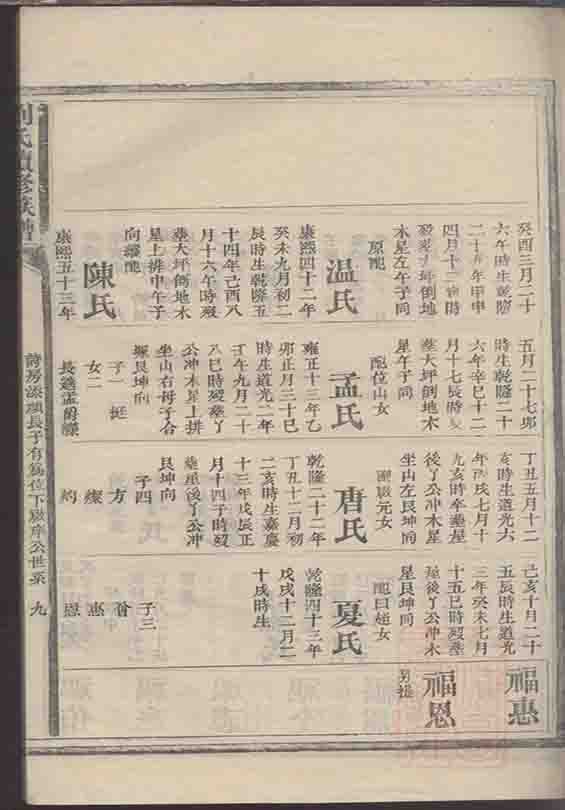 癸酉三月二十
六午時生乾隆
二十九年甲申
四月十三酉時
歿葬大坪倒地
木星左午子同
原配
温氏
康熙四十二年
癸未九月初二
辰時生乾隆五
十四年己酉八
月十六午時歿
葬大坪倒地木
星上排中午子
向繼配
陳氏
康熙五十三年
五月二十七卯
時生乾隆二十
六年辛巳十二
月十七辰時歿
葬大坪倒地木
星午子同
配位山女
孟氏
雍正十三年乙
卯正月三十巳
時生道光二年
壬午九月二十
八巳時歿葬丫
公冲木星上拼
坐山右母子合
塚艮坤向
子一 挺
女二
長適孟蔚
丁丑五月十二
亥時生道光六
年丙戌七月十
九亥時卒葬屋
後丫公冲木星
坐山左艮坤同
元女
唐氏
乾隆二十二年
丁丑十二月初
二亥時生嘉慶
十三年戊辰正
月十四子時歿
葬屋後丫公冲
艮坤向
子四
方
燦
約
己亥十月二十
五辰時生道光
三年癸未七月
十五巳時歿葬
屋後丫公冲木
星艮坤同
配曰超女
夏氏
乾隆四十三年
戊戌十二月二
十戌時生
子三
惠
恩
福惠
福恩
另提
劉氏續修族譜
詩房添順長子有為位下嶽序公世系 九